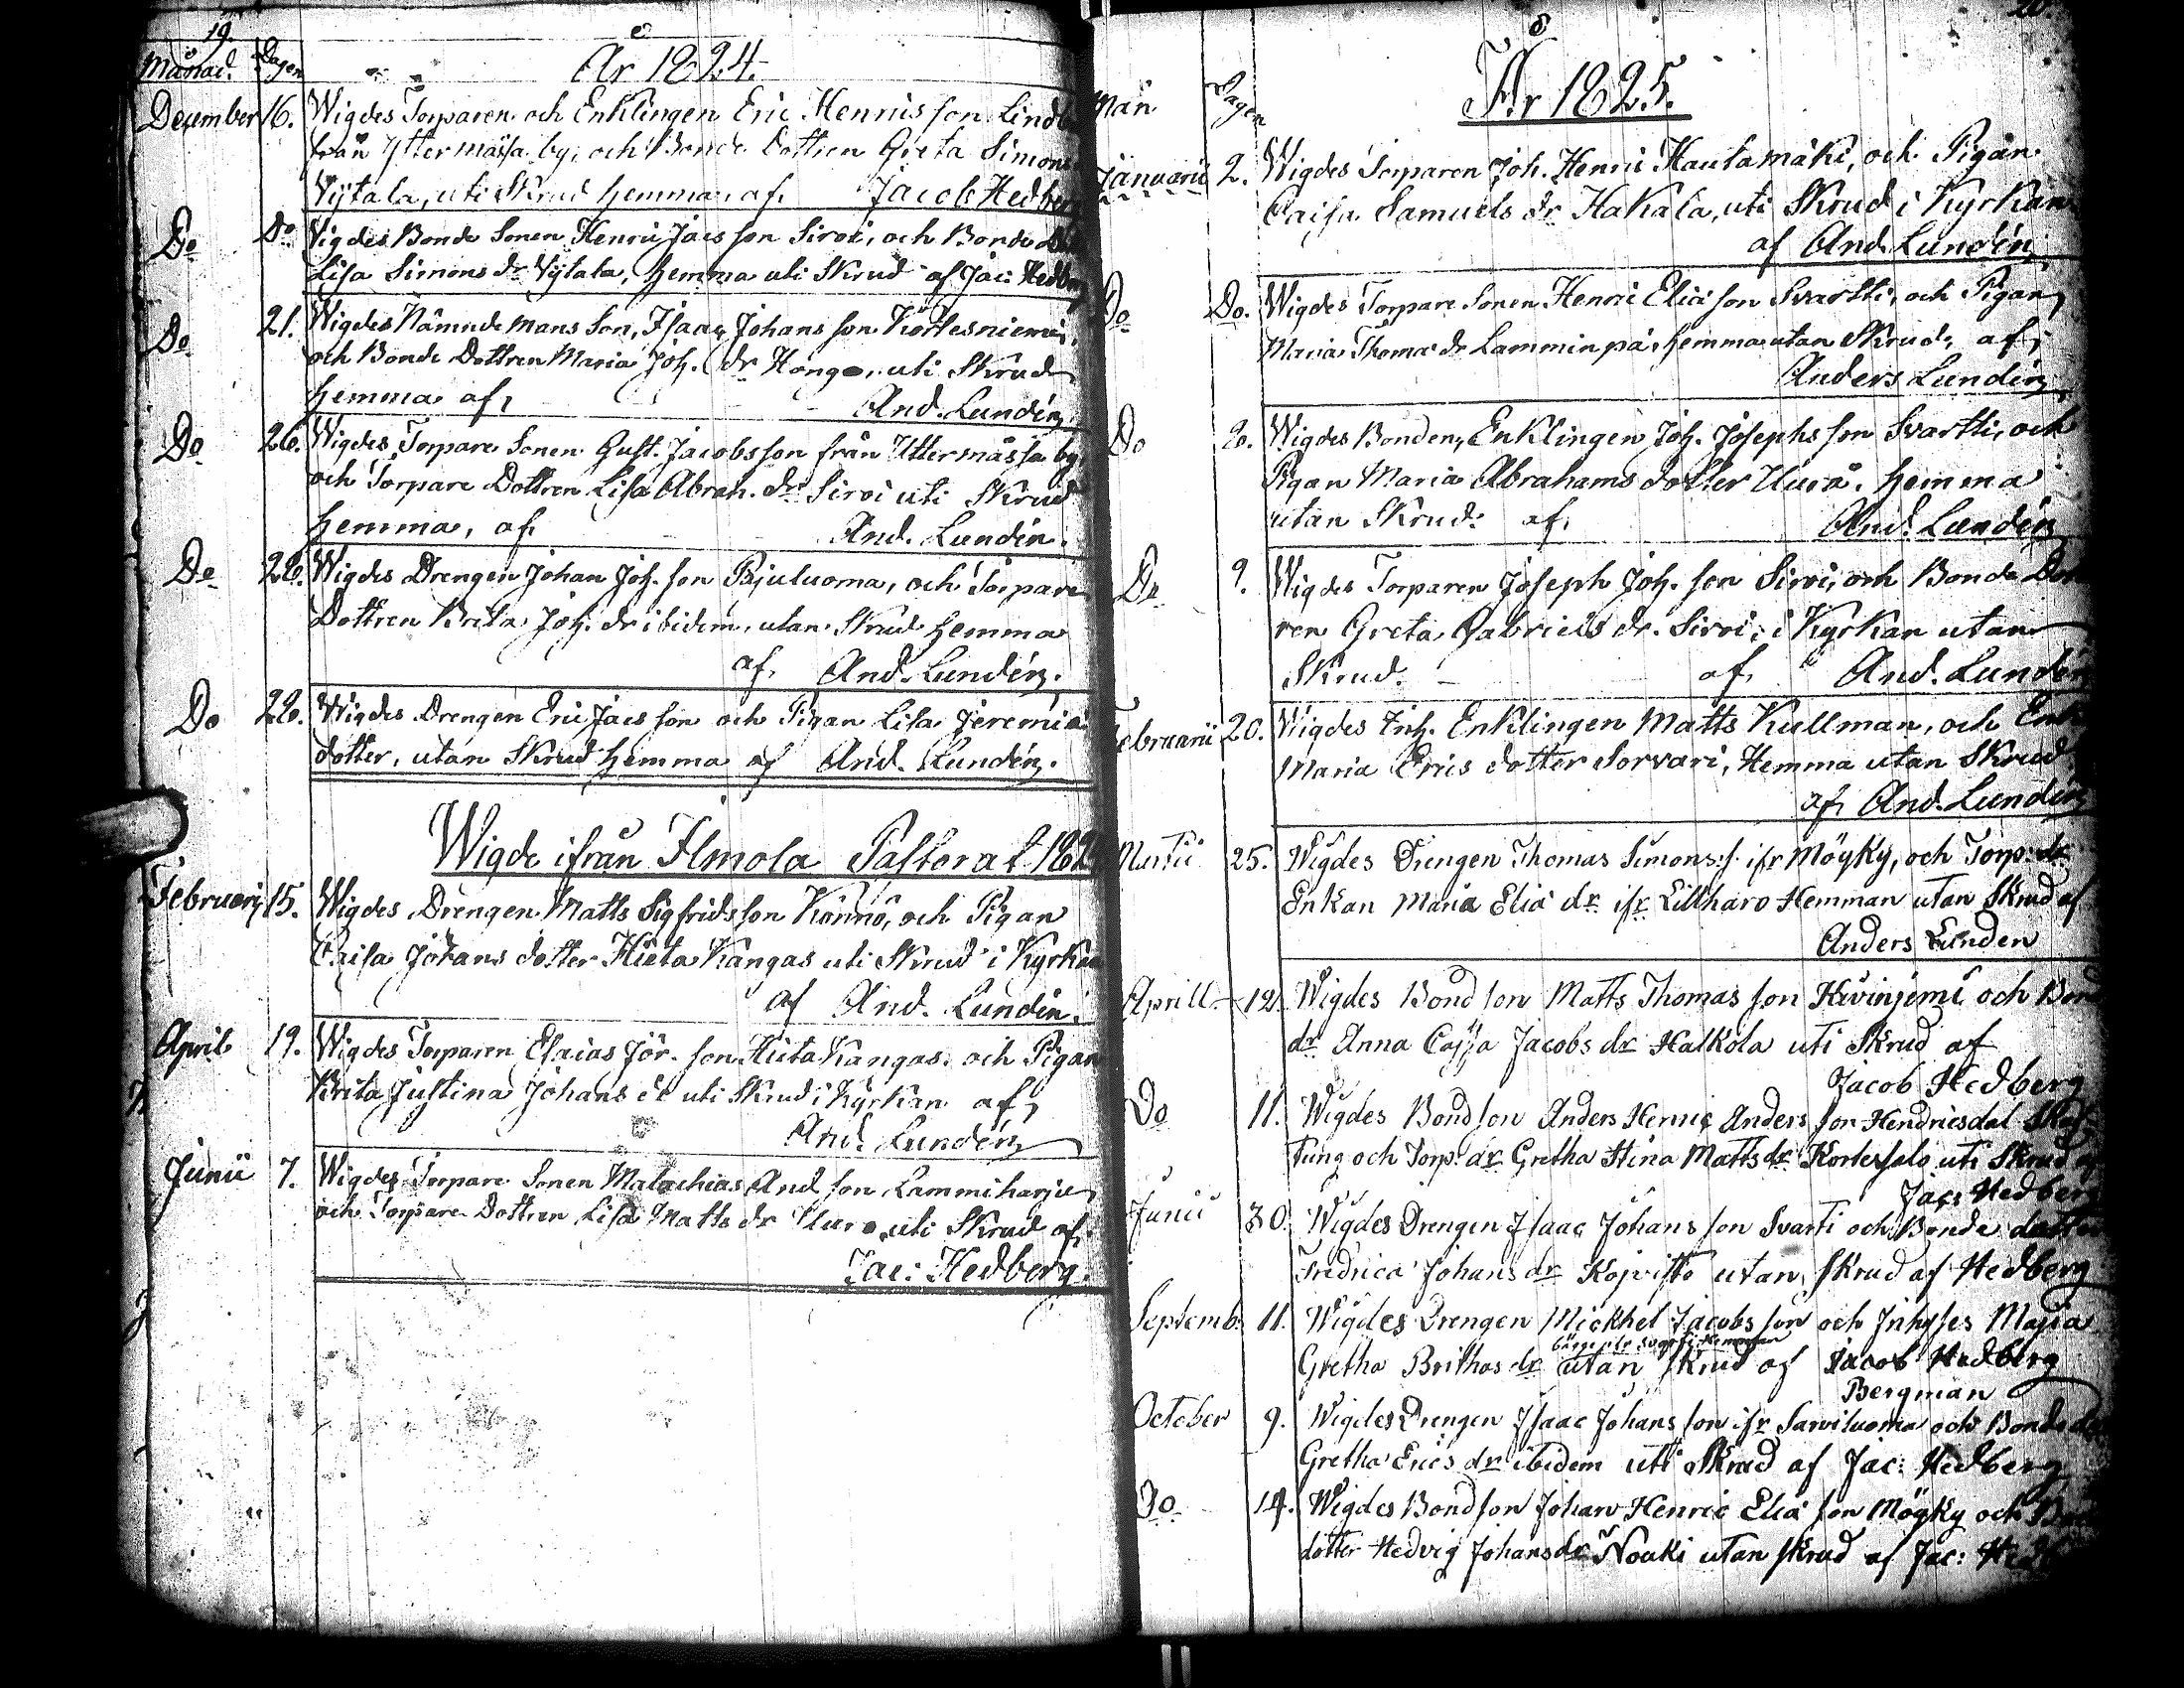 19
Månad. Dagen
År 1824.
December 16. Wigdes Torparen och Enklingen Eric Henrics son
från Yttermässa by, och Bonde Dottren Greta Simons
Vijtala, uti Skrud hemma, af. Jacob Hedberg
Do Do Vigdes Bonde Sonen Henric Jacs son Siroi, och Bonde
Lisa Simons dr Vijtala, hemma uti Skrud af Jac: Hedberg
Do 21. Wigdes Nämndemans Son, Isaac Johans son Kortesniemi,
och Bonde Dottren Maria Joh. dr Hongo, uti Skrud
hemma af, And. Lundén
Do 26. Wigdes Torpare Sonen Gust. Jacobsson från Yttermässa by,
och Torpare Dottren Lisa Abrah. dr Siroi uti Skrud
hemma, af, And. Lundén.
Do 28. Wigdes Drengen Johan Joh. son Pajuluoma, och Torpare
Dottren Brita Joh. dr ibidem, utan Skrud hemma
af, And. Lundén.
Do 28. Wigdes Drengen Eric Jacs son och Pigan Lisa Jeremiæ
dotter, utan Skrud hemma af And. Lundén.
Wigde ifrån Ilmola Pastorat
February 15. Wigdes Drengen Matts Sigfrids son Könnö, och Pigan
Caisa Johans dotter Hieta Kangas uti Skrud i Kyrkan
af And. Lundén.
April 19. Wigdes Torparen Esaias Jör. son Hieta Kangas, och Pigan
Brita Justina Johans dr uti Skrud i Kyrkan af,
And. Lundén
Junii 7. Wigdes Torpare Sonen Malachias And. son Lammiharju,
och Torpare Dottren Lisa Matts dr uti Skrud af,
Jac: Hedberg.
20.
År 1825.
Mån Dagen
Januarii 2. Wigdes Torparen Joh. Henric Hautamäki, och Pigan
Caisa Samuels dr Hakala, uti Skrud i Kyrkan
af And. Lundén
Do Do. Wigdes Torpare Sonen Henric Eliæ son Svartti, och Pigan
Maria Thomæ dr Lamminpä, hemma utan Skrud, af,
Anders Lundén
Do Wigdes Bonden, Enklingen Joh. Josephs son Svartti, och
Pigan Maria Abrahams dotter hemma
utan Skrud. af, And. Lundén
Do 9. Wigdes Torparen Joseph Joh. son Siroi, och Bonde Dott
ren Greta Gabriels dr. Siroi, i Kyrkan utan
Skrud. af, And. Lundén
Februarii 20. Wigdes Inh. Enklingen Matts Kullman, och Enk.
Maria Erics dotter Sorvari, Hemma utan Skrud
af, And. Lundén
Martii 25. Wigdes Drengen Thomas Simons:s. ifr Möyky, och Torp: dr:
Enkan Maria Eliæ dr ifr Lillharo Hemman utan Skrud af
Anders Lunden
Aprill 12. Wigdes Bond son Matts Thomas son och Bond
dr Anna Cajsa Jacobs dr Halkola uti Skrud af
Jacob Hedberg
Do 11. Wigdes Bond son Anders Henric Anders son Hendricsdal
och Torp. dr Gretha Stina Matts dr Kortesalo uti Skrud af
Jac: Hedberg
Junii 30. Wigdes Drengen Isaac Johans son Svarti och Bonde dotter
Fredrica Johans dr Kojvisto utan skrud af Hedberg
Septemb: 11. Wigdes Drengen Mickhel Jacobs son och Inhyses Majia
Gretha Brithas dr utan skrud af Jacob Hedberg
Bergman
October 9. Wigdes Drengen Isaac Johans son ifr Sarviluoma och Bonde dr
Gretha Erics dr ibidem uti Skrud af Jac: Hedberg
Do 14. Wigdes Bond son Johan Henric Eliæ son Möyky och
dotter Hedvig Johans dr Nouki utan skrud af Jac: